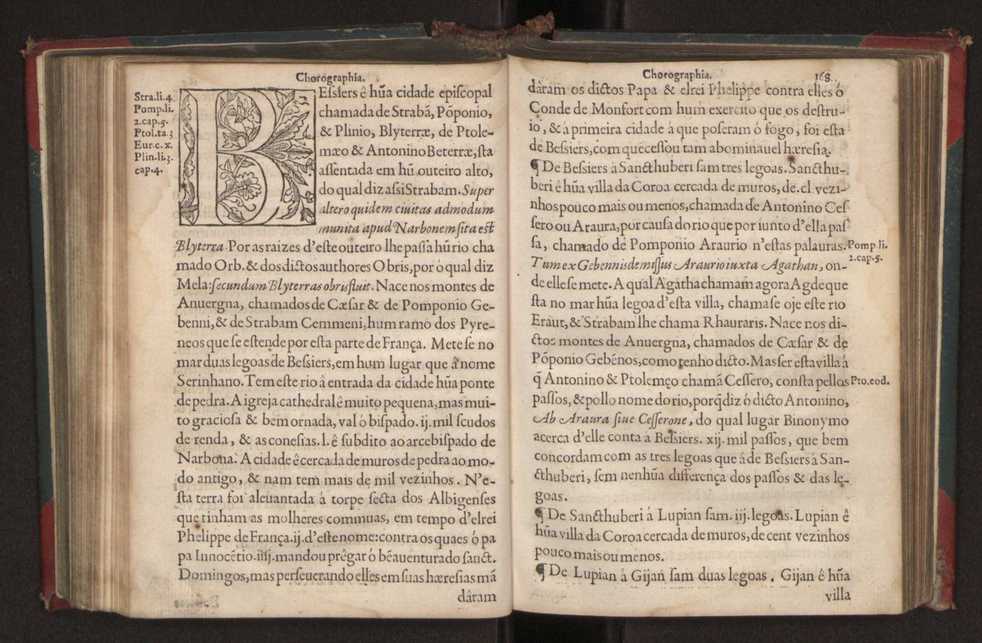 Chorographia.
Stra.li.4.
Pomp.li.
2.cap.5.
Ptol.ta.3
Eur.c.x.
Plin.li.3.
cap.4.
BEſsiers ê hũa cidade epiſcopal
chamada de Strabã, Põponio,
& Plinio, Blyterræ, de Ptole-
mæo & Antonino Beterræ, ſta
aſſentada em hũ outeiro alto,
do qual diz aſsi Strabam. Super
altero quidem ciuitas admodum
munita apud Narbonem ſita eſt
Blyterra. Por as raizes d'eſte outeiro lhe paſſa hũ rio cha
mado Orb. & dos dictos authores Obris, por o qual diz
Mela: ſecundum Blyterras obris fluit. Nace nos montes de
Anuergna, chamados de Cæſar & de Pomponio Ge-
benni, & de Strabam Cemmeni, hum ramo dos Pyre-
neos que ſe eſtende por eſta parte de França. Mete ſe no
mar duas legoas de Beſsiers, em hum lugar que â nome
Serinhano. Tem eſte rio â entrada da cidade hũa ponte
de pedra. A igreja cathedral ê muito pequena, mas mui-
to gracioſa & bem ornada, val ó biſpado. ij. mil ſcudos
de renda, & as conesias. l. ê ſubdito ao arcebiſpado de
Narbona. A cidade ê cercada de muros de pedra ao mo-
do antigo, & nam tem mais de mil vezinhos. N'e-
ſta terra foi aleuantada â torpe ſecta dos Albigenſes
que tinham as molheres commuas, em tempo d'elrei
Phelippe de França. ij. d'eſte nome: contra os quaes ó pa
pa Innocẽtio. iiij. mandou prêgar ó bẽauenturado ſanct.
Domingos, mas perſeuerando elles em ſuas hæreſias mã
dâram
Chorographia. 168.
dâram os dictos Papa & elrei Phelippe contra elles ó
Conde de Monfort com hum exercito que os deſtru-
io, & â primeira cidade â que poſeram ó fogo, foi eſta
de Beſsiers, com que ceſſou tam abominauel hæreſia.
¶ De Beſsiers â Sancthuberi ſam tres legoas. Sancthu-
beri ê hũa villa da Coroa cercada de muros, de. cl. vezi-
nhos pouco mais ou menos, chamada de Antonino Ceſ-
ſero ou Araura, por cauſa do rio que por iunto d'ella paſ
ſa, chamado de Pomponio Araurio n'eſtas palauras. Pomp li.
2.cap.5.
Tum ex Gebennis demiſſus Araurio iuxta Agathan, on-
de elle ſe mete. A qual Agatha chamam agora Agde que
ſta no mar hũa legoa d'eſta villa, chamaſe oje eſte rio
Eraur, & Strabam lhe chama Rhauraris. Nace nos di-
ctos montes de Anuergna, chamados de Cæſar & de
Põponio Gebẽnos, como tenho dicto. Mas ſer eſta villa â
q̃ Antonino & Ptolemęo chamã Ceſſero, conſta pellos Pto.eod.
paſſos, & pollo nome do rio, porq̃ diz ó dicto Antonino,
Ab Araura ſiue Ceſſerone, do qual lugar Binonymo
acerca d'elle conta â Beſsiers. xij. mil paſſos, que bem
concordam com as tres legoas que â de Beſsiers â San-
cthuberi, ſem nenhũa differença dos paſſos & das lę-
goas.
¶ De Sancthuberi â Lupian ſam. iij. legoas. Lupian ê
hũa villa da Coroa cercada de muros, de cent vezinhos
pouco mais ou menos.
¶ De Lupian â Gijan ſam duas legoas. Gijan ê hũa
villa